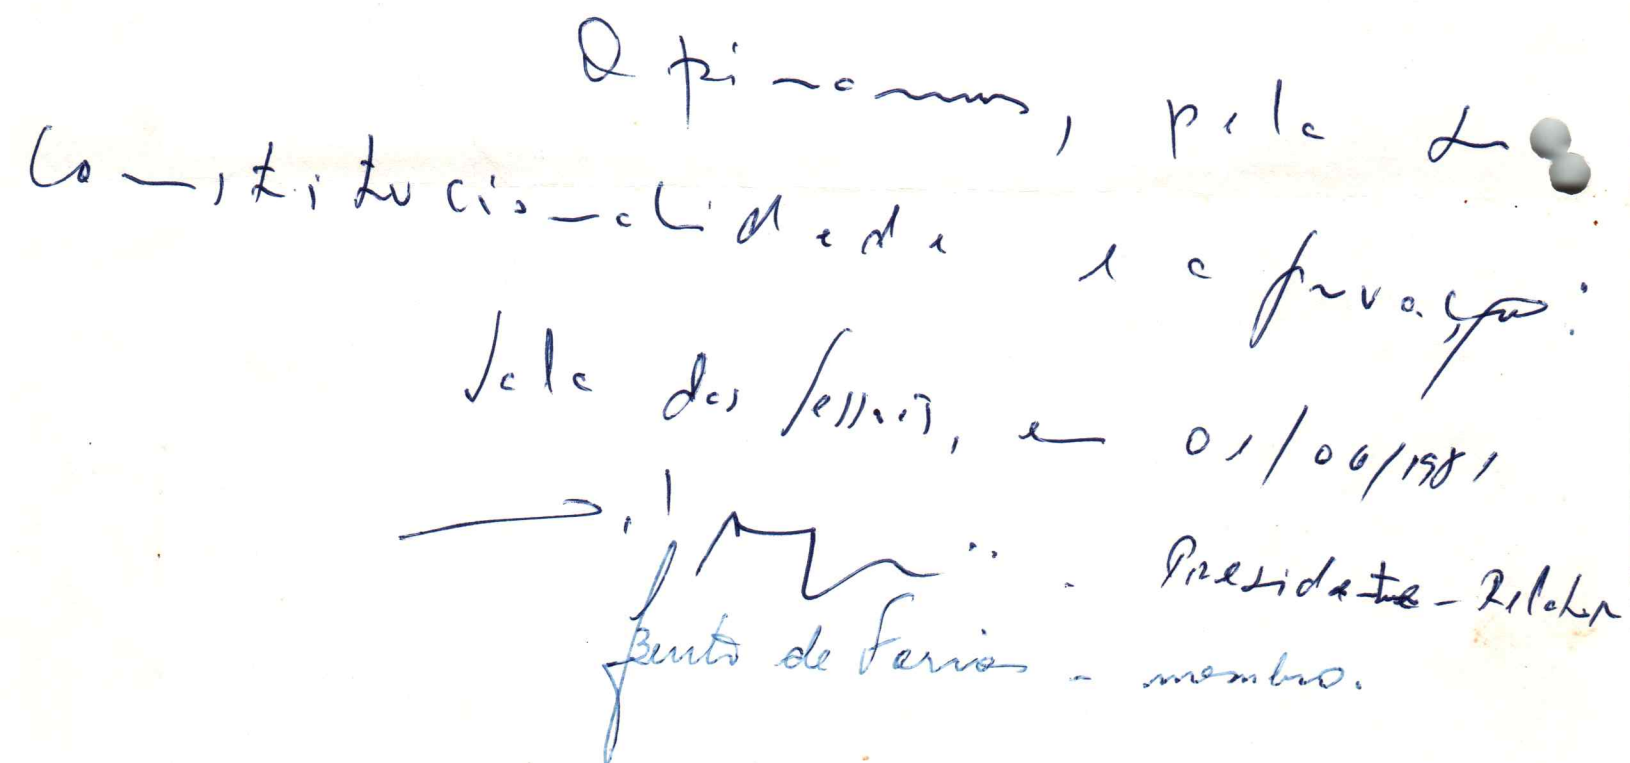 Opinamos, pela
Constitucionalidade e aprovação:
Sala das Sessões, em 01/06/1981
Presidente - Relator
Bento de Farias - membro.